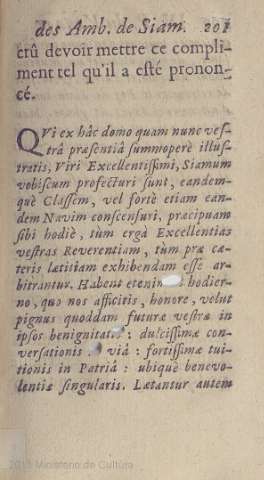 des Amb. de Siam. 201
crû devoir mettre ce compli-
ment tel qu'il a esté pronon-
cé.
QVi ex hâc domo quam nunc vef-
trâ præsentiâ summoperè illus-
tratis, Viri Excellentissimi, Siamum
vobiscum profecturi sunt, eandem-
què Classem, vel fortè etiam ean-
dem Navim conscensuri, præcipuam
sibi hodiè, tùm ergà Excellentias
vestras Reverentiam, tùm præ cæ-
teris lætitiam exhibendam essè ar-
bitrantur. Habent etenim hodier-
no, quo nos afficitis, honore, velut
pignus quoddam futuræ vestræ in
ipsos benignitatis : dulcissimæ con-
versationis viâ : fortissimæ tui-
tionis in Patriâ : ubiquè benevo-
lentiæ singularis. Lætantur autem
2013 Ministerio de Cultura